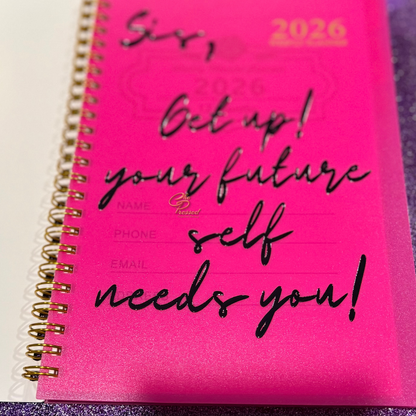 Sis,
2026
2026
Get up!
your future
NAME
Pressed
self
PHONE
EMAIL
needs you!